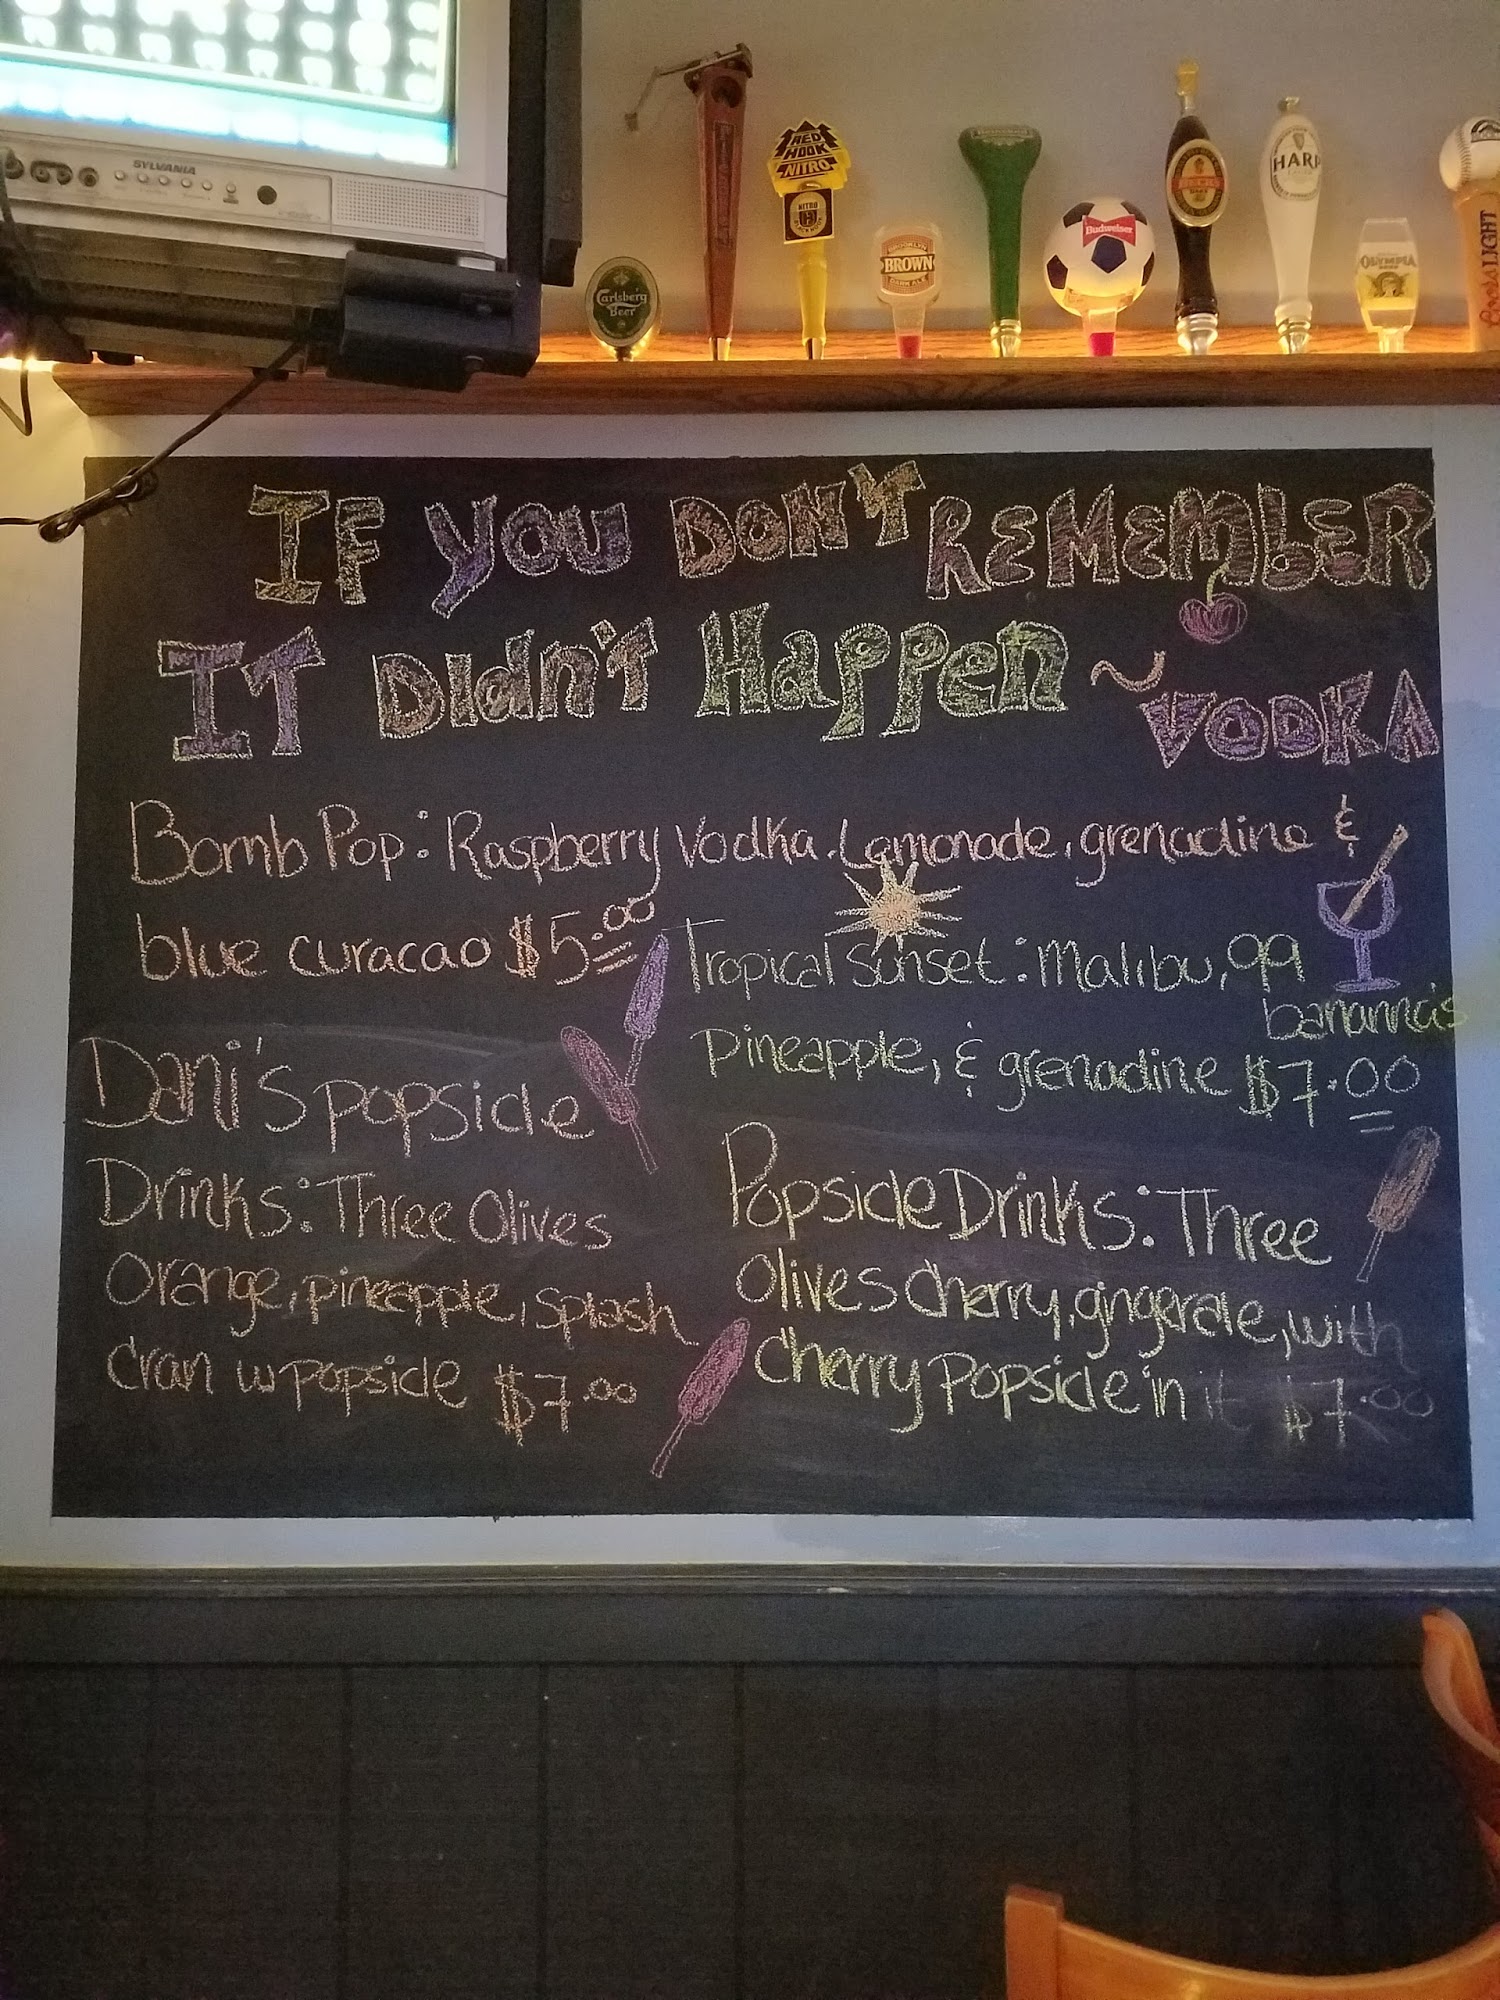 SYLVANIA
Carlsberg
Beer
RED
HOOK
NITRO
NITRO
BROOKLYN
BROWN
DARK ALE
Heineken
Budweiser
HARP
OLYMPIA
BEER
Coors LIGHT
IF YOU DON'T REMEMBER
IT DIDN'T HAPPEN ~ VODKA
Bomb Pop: Raspberry Vodka, Lemonade, grenadine &
blue curacao $5.00
Tropical Sunset: Malibu, 99
bananna's
Pineapple, & grenadine $7.00
Dani's popsicle
Drinks: Three Olives
Orange, pineapple, splash
cran w popsicle $7.00
Popsicle Drinks: Three
Olives cherry, gingerale, with
cherry Popsicle in it $7.00